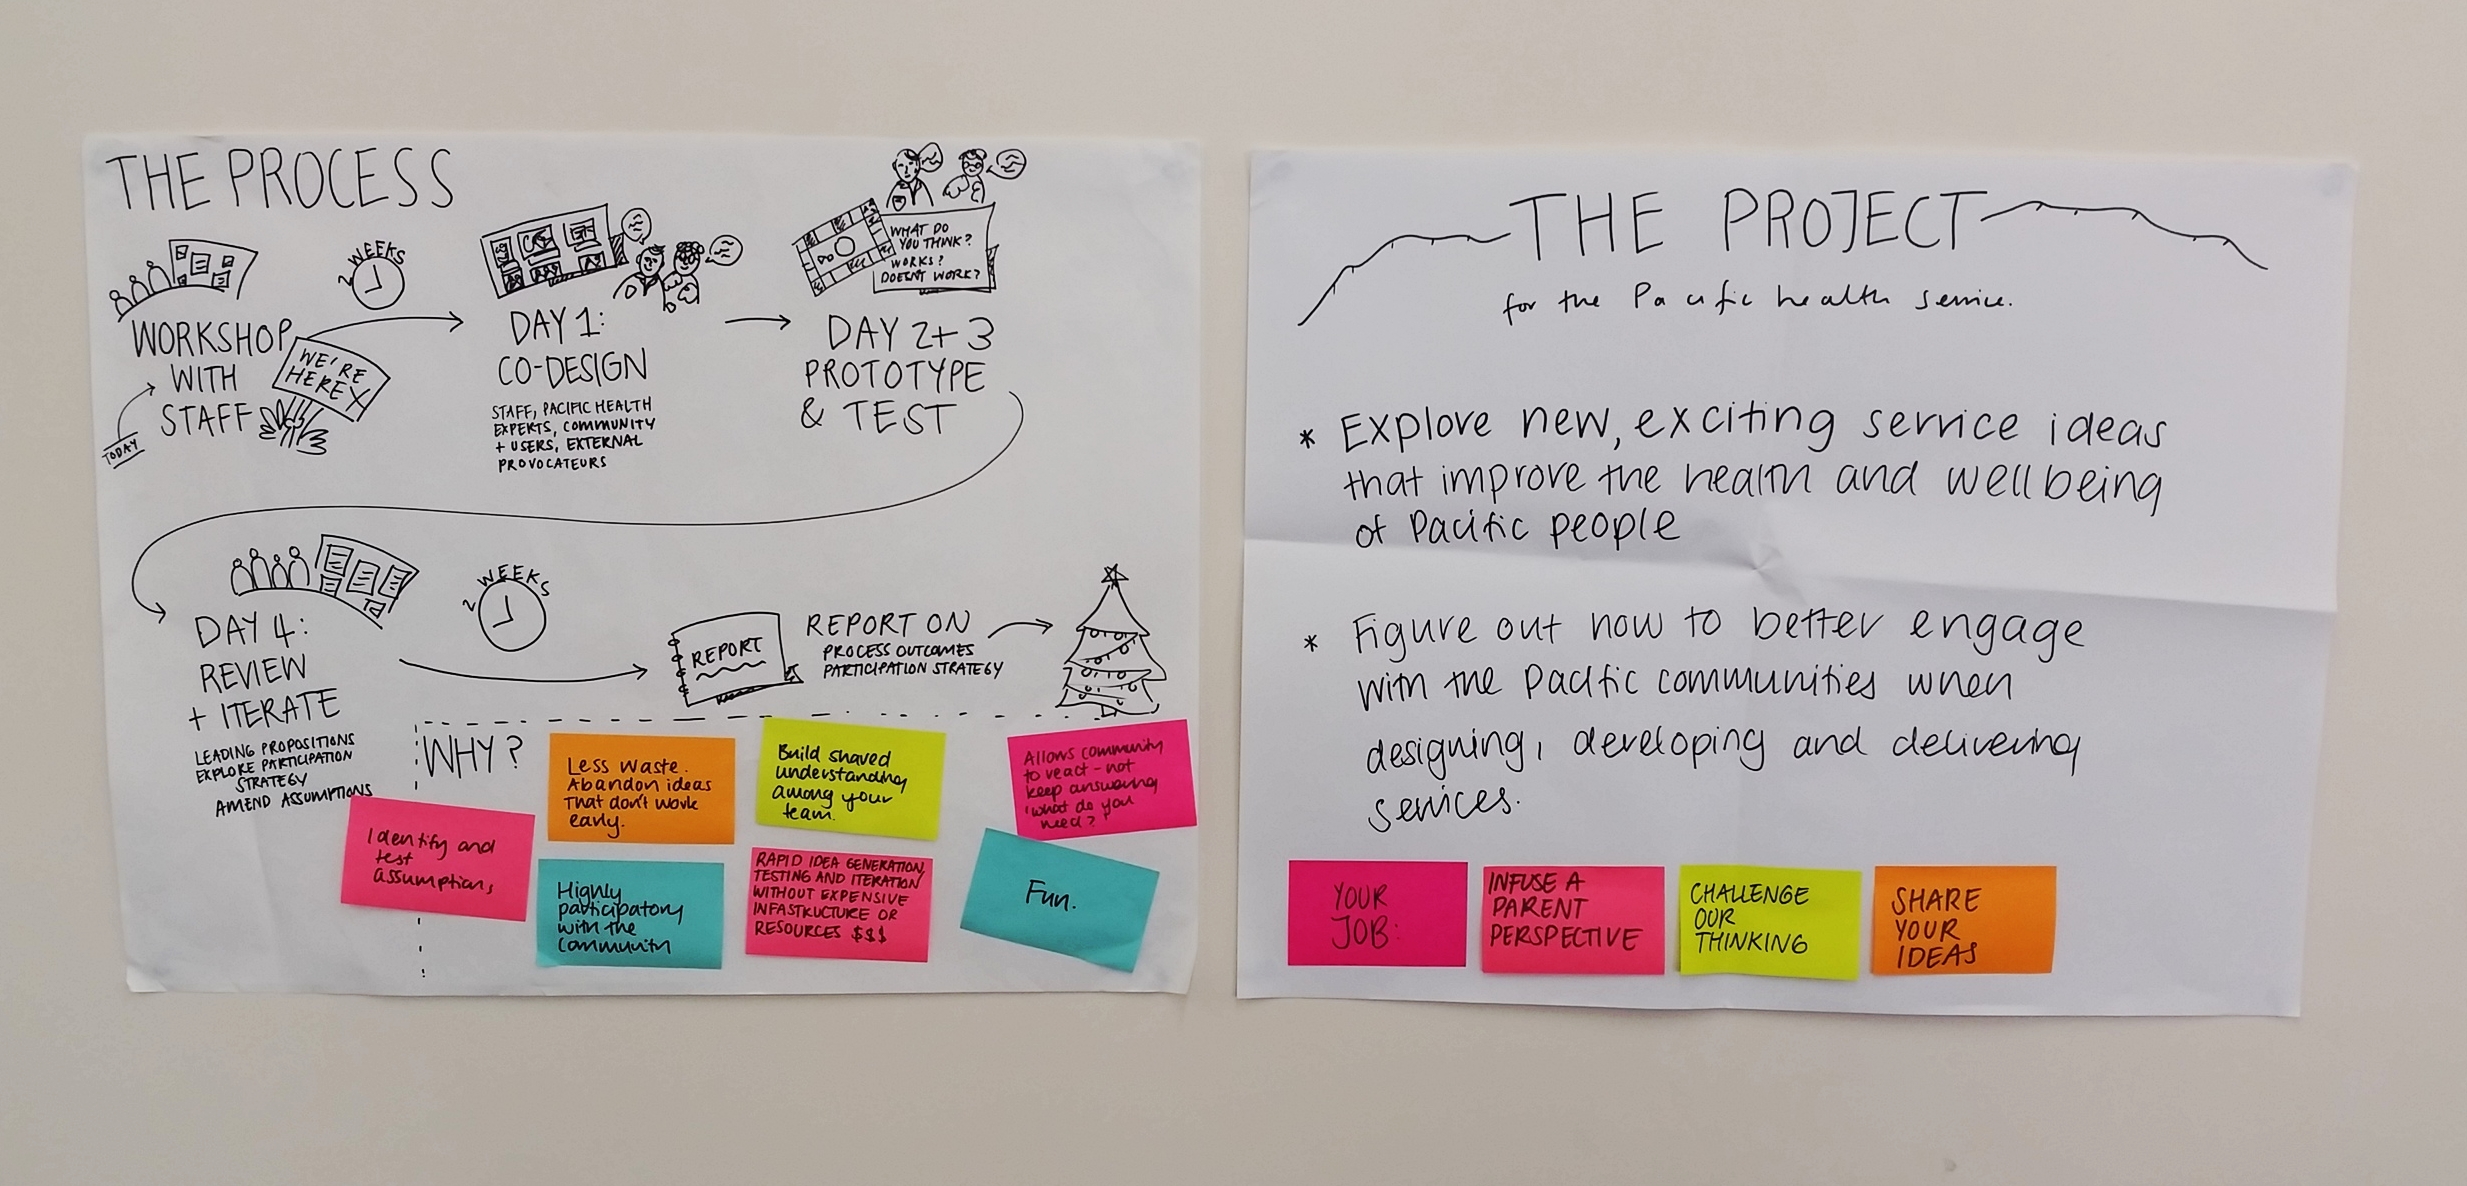 THE PROCESS
2 WEEKS
WORKSHOP
WITH
STAFF
TODAY
WE'RE
HERE X
DAY 1:
CO-DESIGN
STAFF, PACIFIC HEALTH
EXPERTS, COMMUNITY
+ USERS, EXTERNAL
PROVOCATEURS
WHAT DO
YOU THINK?
WORKS?
DOESNT WORK?
DAY 2+3
PROTOTYPE
& TEST
DAY 4:
REVIEW
+ ITERATE
LEADING PROPOSITIONS
EXPLORE PARTICIPATION
STRATEGY
AMEND ASSUMPTIONS
2 WEEKS
REPORT
REPORT ON
PROCESS OUTCOMES
PARTICIPATION STRATEGY
WHY?
Identify and
test
assumptions
Less waste.
Abandon ideas
that don't work
early.
Highly
participatory
with the
community
Build shared
understanding
among your
team.
RAPID IDEA GENERATION,
TESTING AND ITERATION
WITHOUT EXPENSIVE
INFASTRUCTURE OR
RESOURCES $$$
Allows community
to react - not
keep answering
'what do you
need?'
Fun.
THE PROJECT
for the Pacific health service.
* Explore new, exciting service ideas
that improve the health and wellbeing
of Pacific people
* Figure out how to better engage
with the Pacific communities when
designing, developing and delivering
services.
YOUR
JOB:
INFUSE A
PARENT
PERSPECTIVE
CHALLENGE
OUR
THINKING
SHARE
YOUR
IDEAS